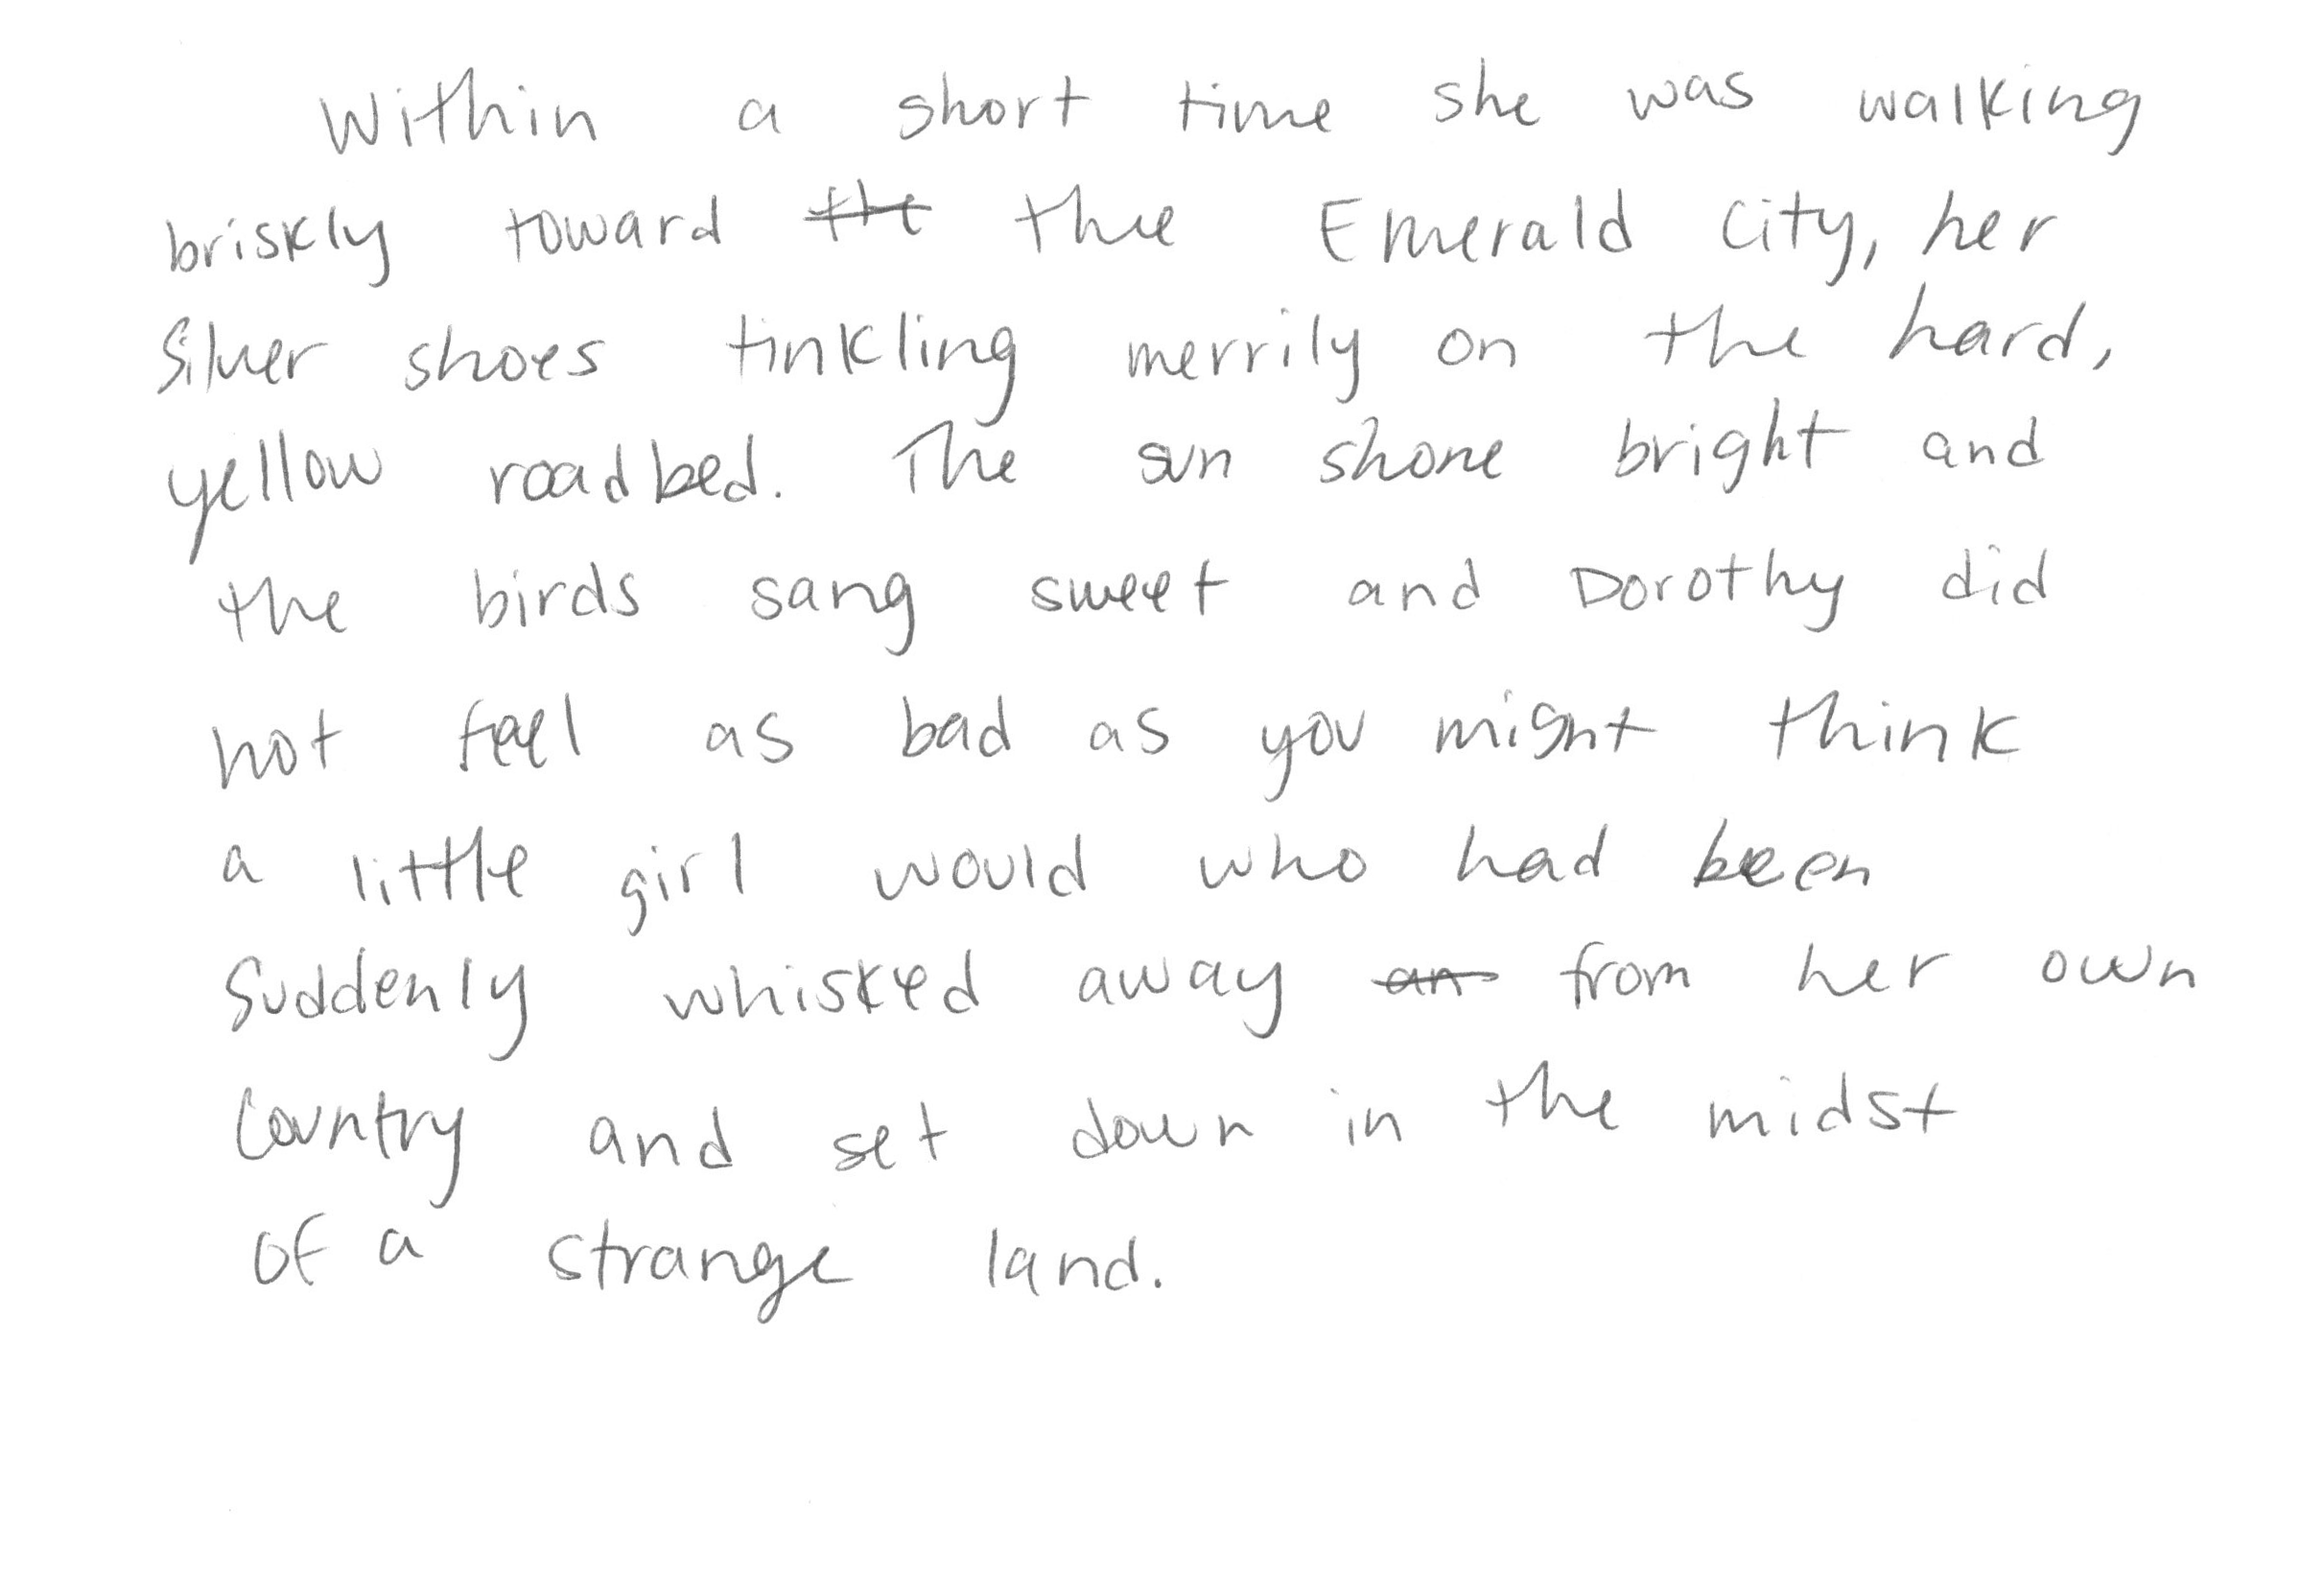 Within a short time she was walking
briskly toward the the Emerald City, her
Silver shoes tinkling merrily on the hard,
yellow roadbed. The sun shone bright and
the birds sang sweet and Dorothy did
not feel as bad as you might think
a little girl would who had been
suddenly whisked away an from her own
country and set down in the midst
of a strange land.